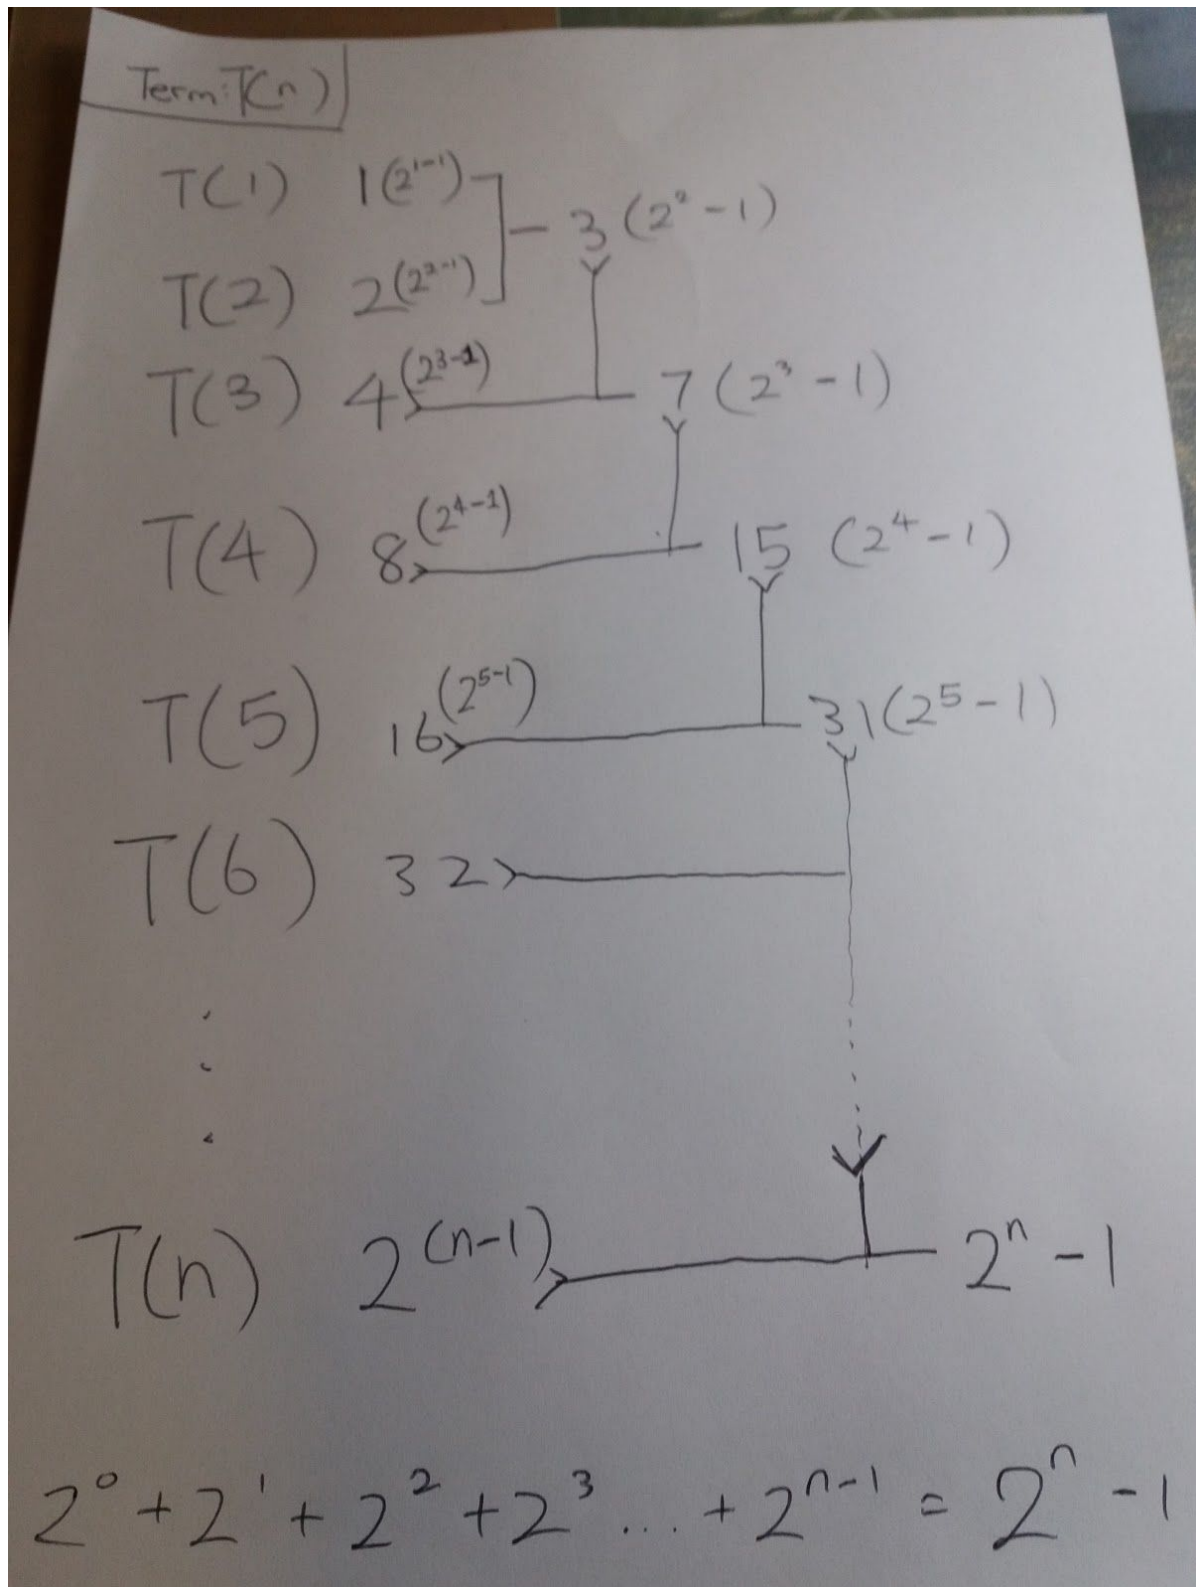 Term: T(n)
T(1) 1 (2¹⁻¹) - 3 (2² - 1)
T(2) 2 (2²⁻¹)
T(3) 4 (2³⁻¹) 7 (2³ - 1)
T(4) 8 (2⁴⁻¹) 15 (2⁴ - 1)
T(5) 16 (2⁵⁻¹) 31 (2⁵ - 1)
T(6) 32
T(n) 2⁽ⁿ⁻¹⁾ 2ⁿ - 1
2⁰ + 2¹ + 2² + 2³ ... + 2ⁿ⁻¹ = 2ⁿ - 1